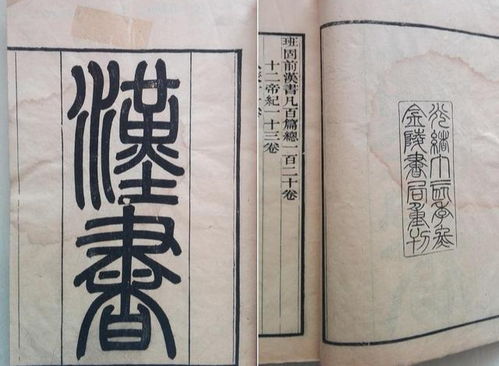 漢書
班固前漢書凡百篇總一百二十卷
十二帝紀一十三卷
光緒
金陵書局重刊